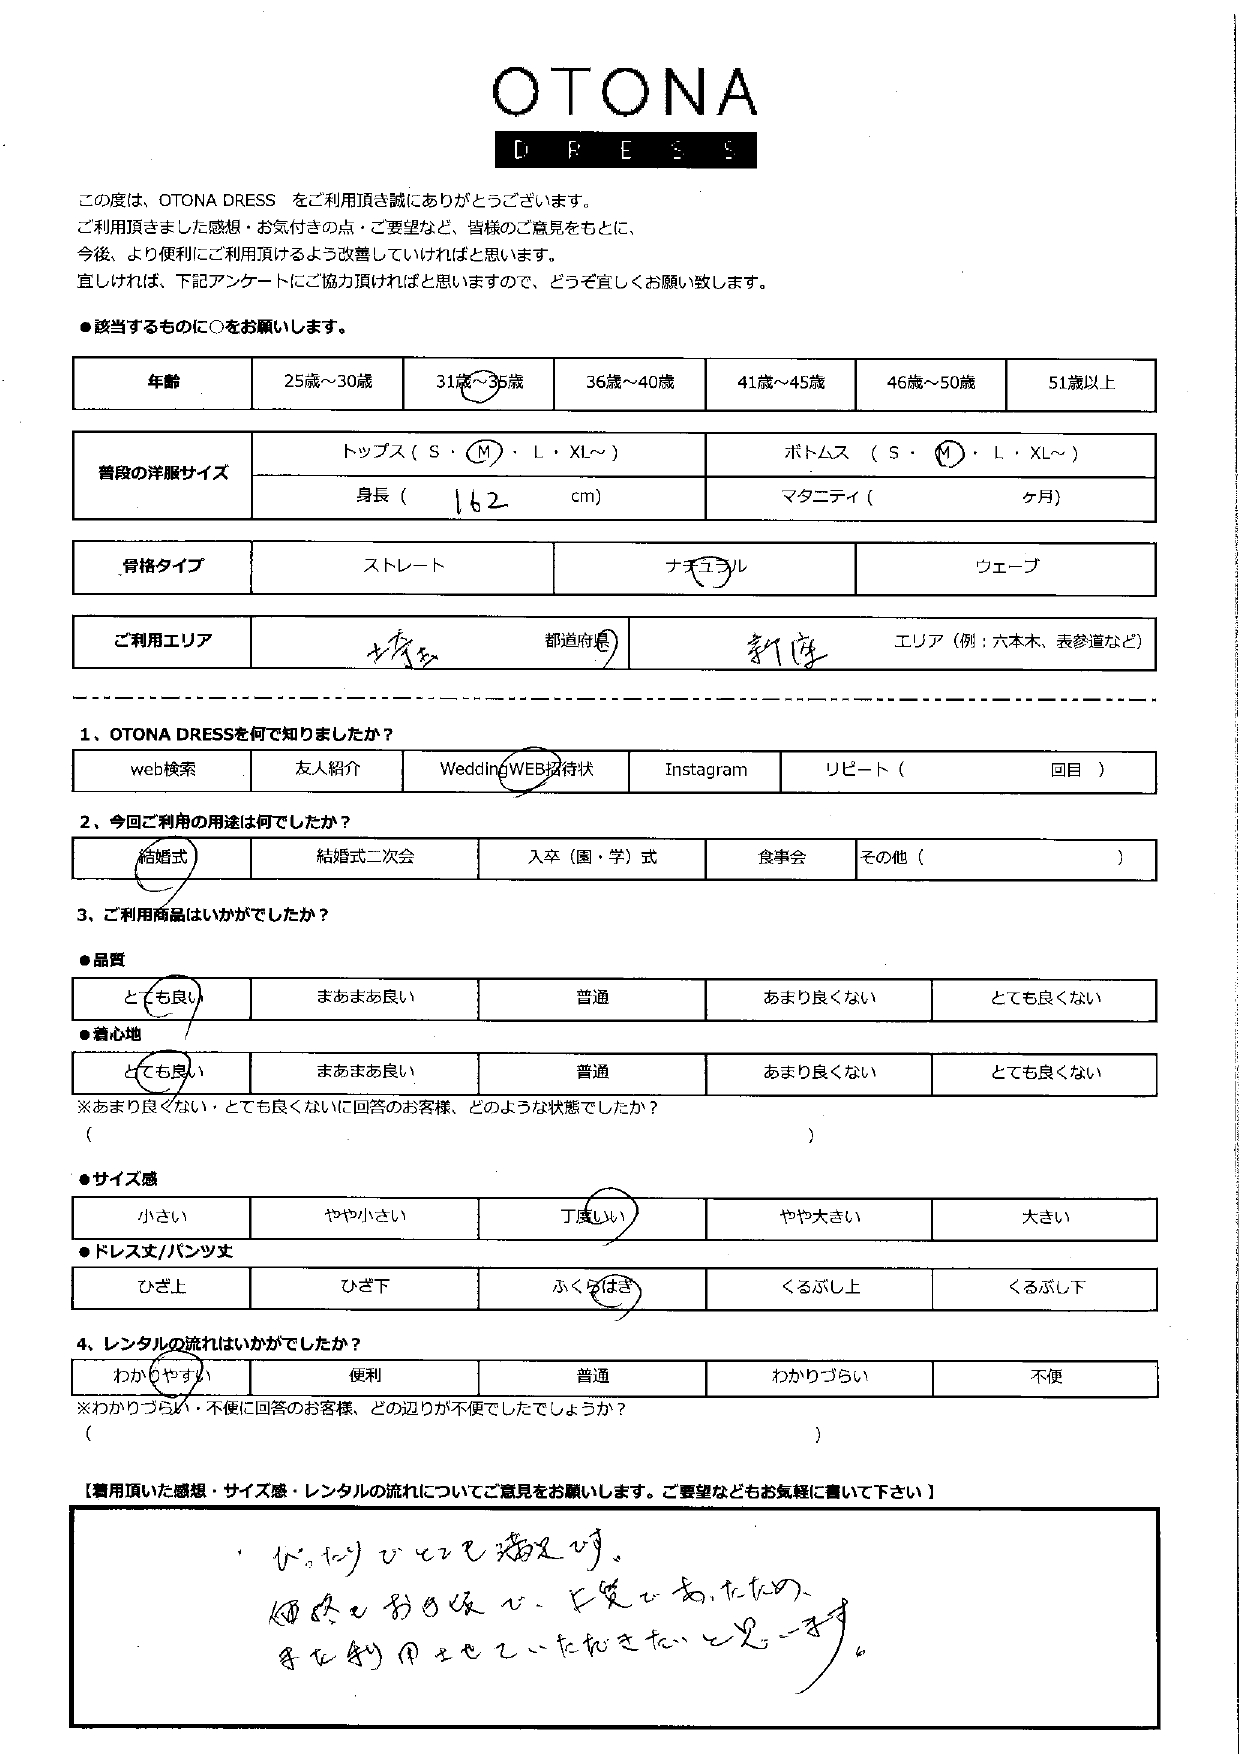 OTONA
DRESS
この度は、OTONA DRESS　をご利用頂き誠にありがとうございます。
ご利用頂きました感想・お気付きの点・ご要望など、皆様のご意見をもとに、
今後、より便利にご利用頂けるよう改善していければと思います。
宜しければ、下記アンケートにご協力頂ければと思いますので、どうぞ宜しくお願い致します。
●該当するものに○をお願いします。
年齢 25歳～30歳 31歳～35歳 36歳～40歳 41歳～45歳 46歳～50歳 51歳以上
普段の洋服サイズ
トップス ( S ・ M ・ L ・ XL～ ) ボトムス ( S ・ M ・ L ・ XL～ )
身長 ( 162 cm) マタニティ ( ヶ月)
骨格タイプ ストレート ナチュラル ウェーブ
ご利用エリア 埼玉 都道府県 新座 エリア（例：六本木、表参道など）
1、OTONA DRESSを何で知りましたか？
web検索 友人紹介 WeddingWEB招待状 Instagram リピート ( 回目 )
2、今回ご利用の用途は何でしたか？
結婚式 結婚式二次会 入卒（園・学）式 食事会 その他 ( )
3、ご利用商品はいかがでしたか？
●品質
とても良い まあまあ良い 普通 あまり良くない とても良くない
●着心地
とても良い まあまあ良い 普通 あまり良くない とても良くない
※あまり良くない・とても良くないに回答のお客様、どのような状態でしたか？
( )
●サイズ感
小さい やや小さい 丁度いい やや大きい 大きい
●ドレス丈/パンツ丈
ひざ上 ひざ下 ふくらはぎ くるぶし上 くるぶし下
4、レンタルの流れはいかがでしたか？
わかりやすい 便利 普通 わかりづらい 不便
※わかりづらい・不便に回答のお客様、どの辺りが不便でしたでしょうか？
( )
【着用頂いた感想・サイズ感・レンタルの流れについてご意見をお願いします。ご要望などもお気軽に書いて下さい】
ぴったりでとても満足です。
価格もお手頃で、上質であったため、
また利用させていただきたいと思います。